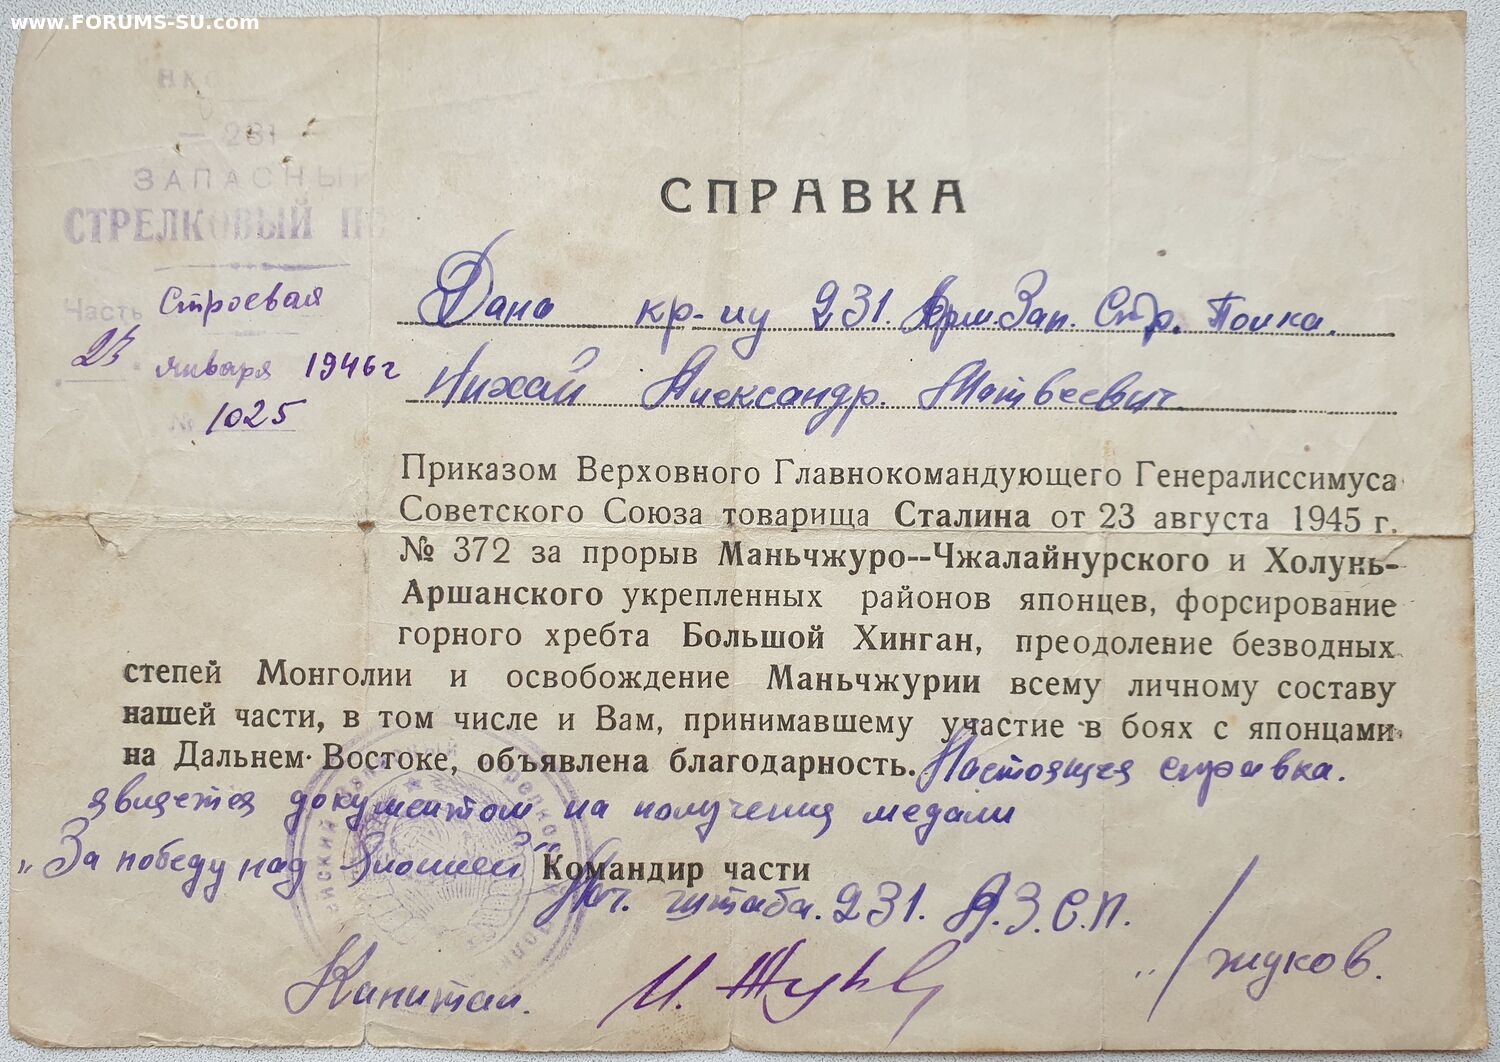 www.FORUMS-SU.com
НК
— 231 —
ЗАПАСНЫЙ
СТРЕЛКОВЫЙ ПО
Часть Строевая
23 января 1946 г
№ 1025
СПРАВКА
Дана кр-цу 231. Арм. Зап. Стр. Полка.
Михай Александр. Матвеевич.
Приказом Верховного Главнокомандующего Генералиссимуса
Советского Союза товарища Сталина от 23 августа 1945 г.
№ 372 за прорыв Маньчжуро--Чжалайнурского и Холунь-
Аршанского укрепленных районов японцев, форсирование
горного хребта Большой Хинган, преодоление безводных
степей Монголии и освобождение Маньчжурии всему личному составу
нашей части, в том числе и Вам, принимавшему участие в боях с японцами
на Дальнем Востоке, объявлена благодарность. Настоящая справка.
является документом на получения медали
„За победу над Японией“ Командир части
Нач. штаба. 231. А.З.С.П.
Капитан. И. Жуков /Жуков.